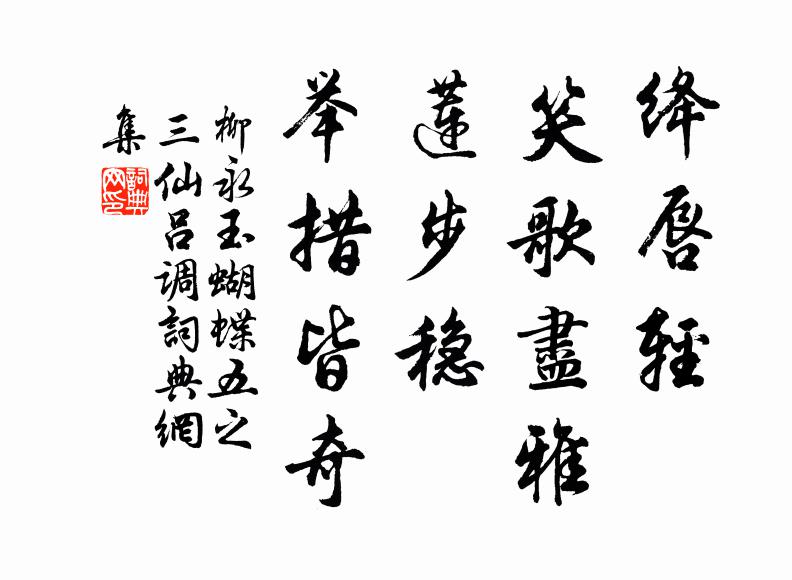 绛唇輕
笑歌盡雅
蓮步稳
举措皆奇
柳永玉蝴蝶五之
三仙吕调詞典網
集
詞典網印